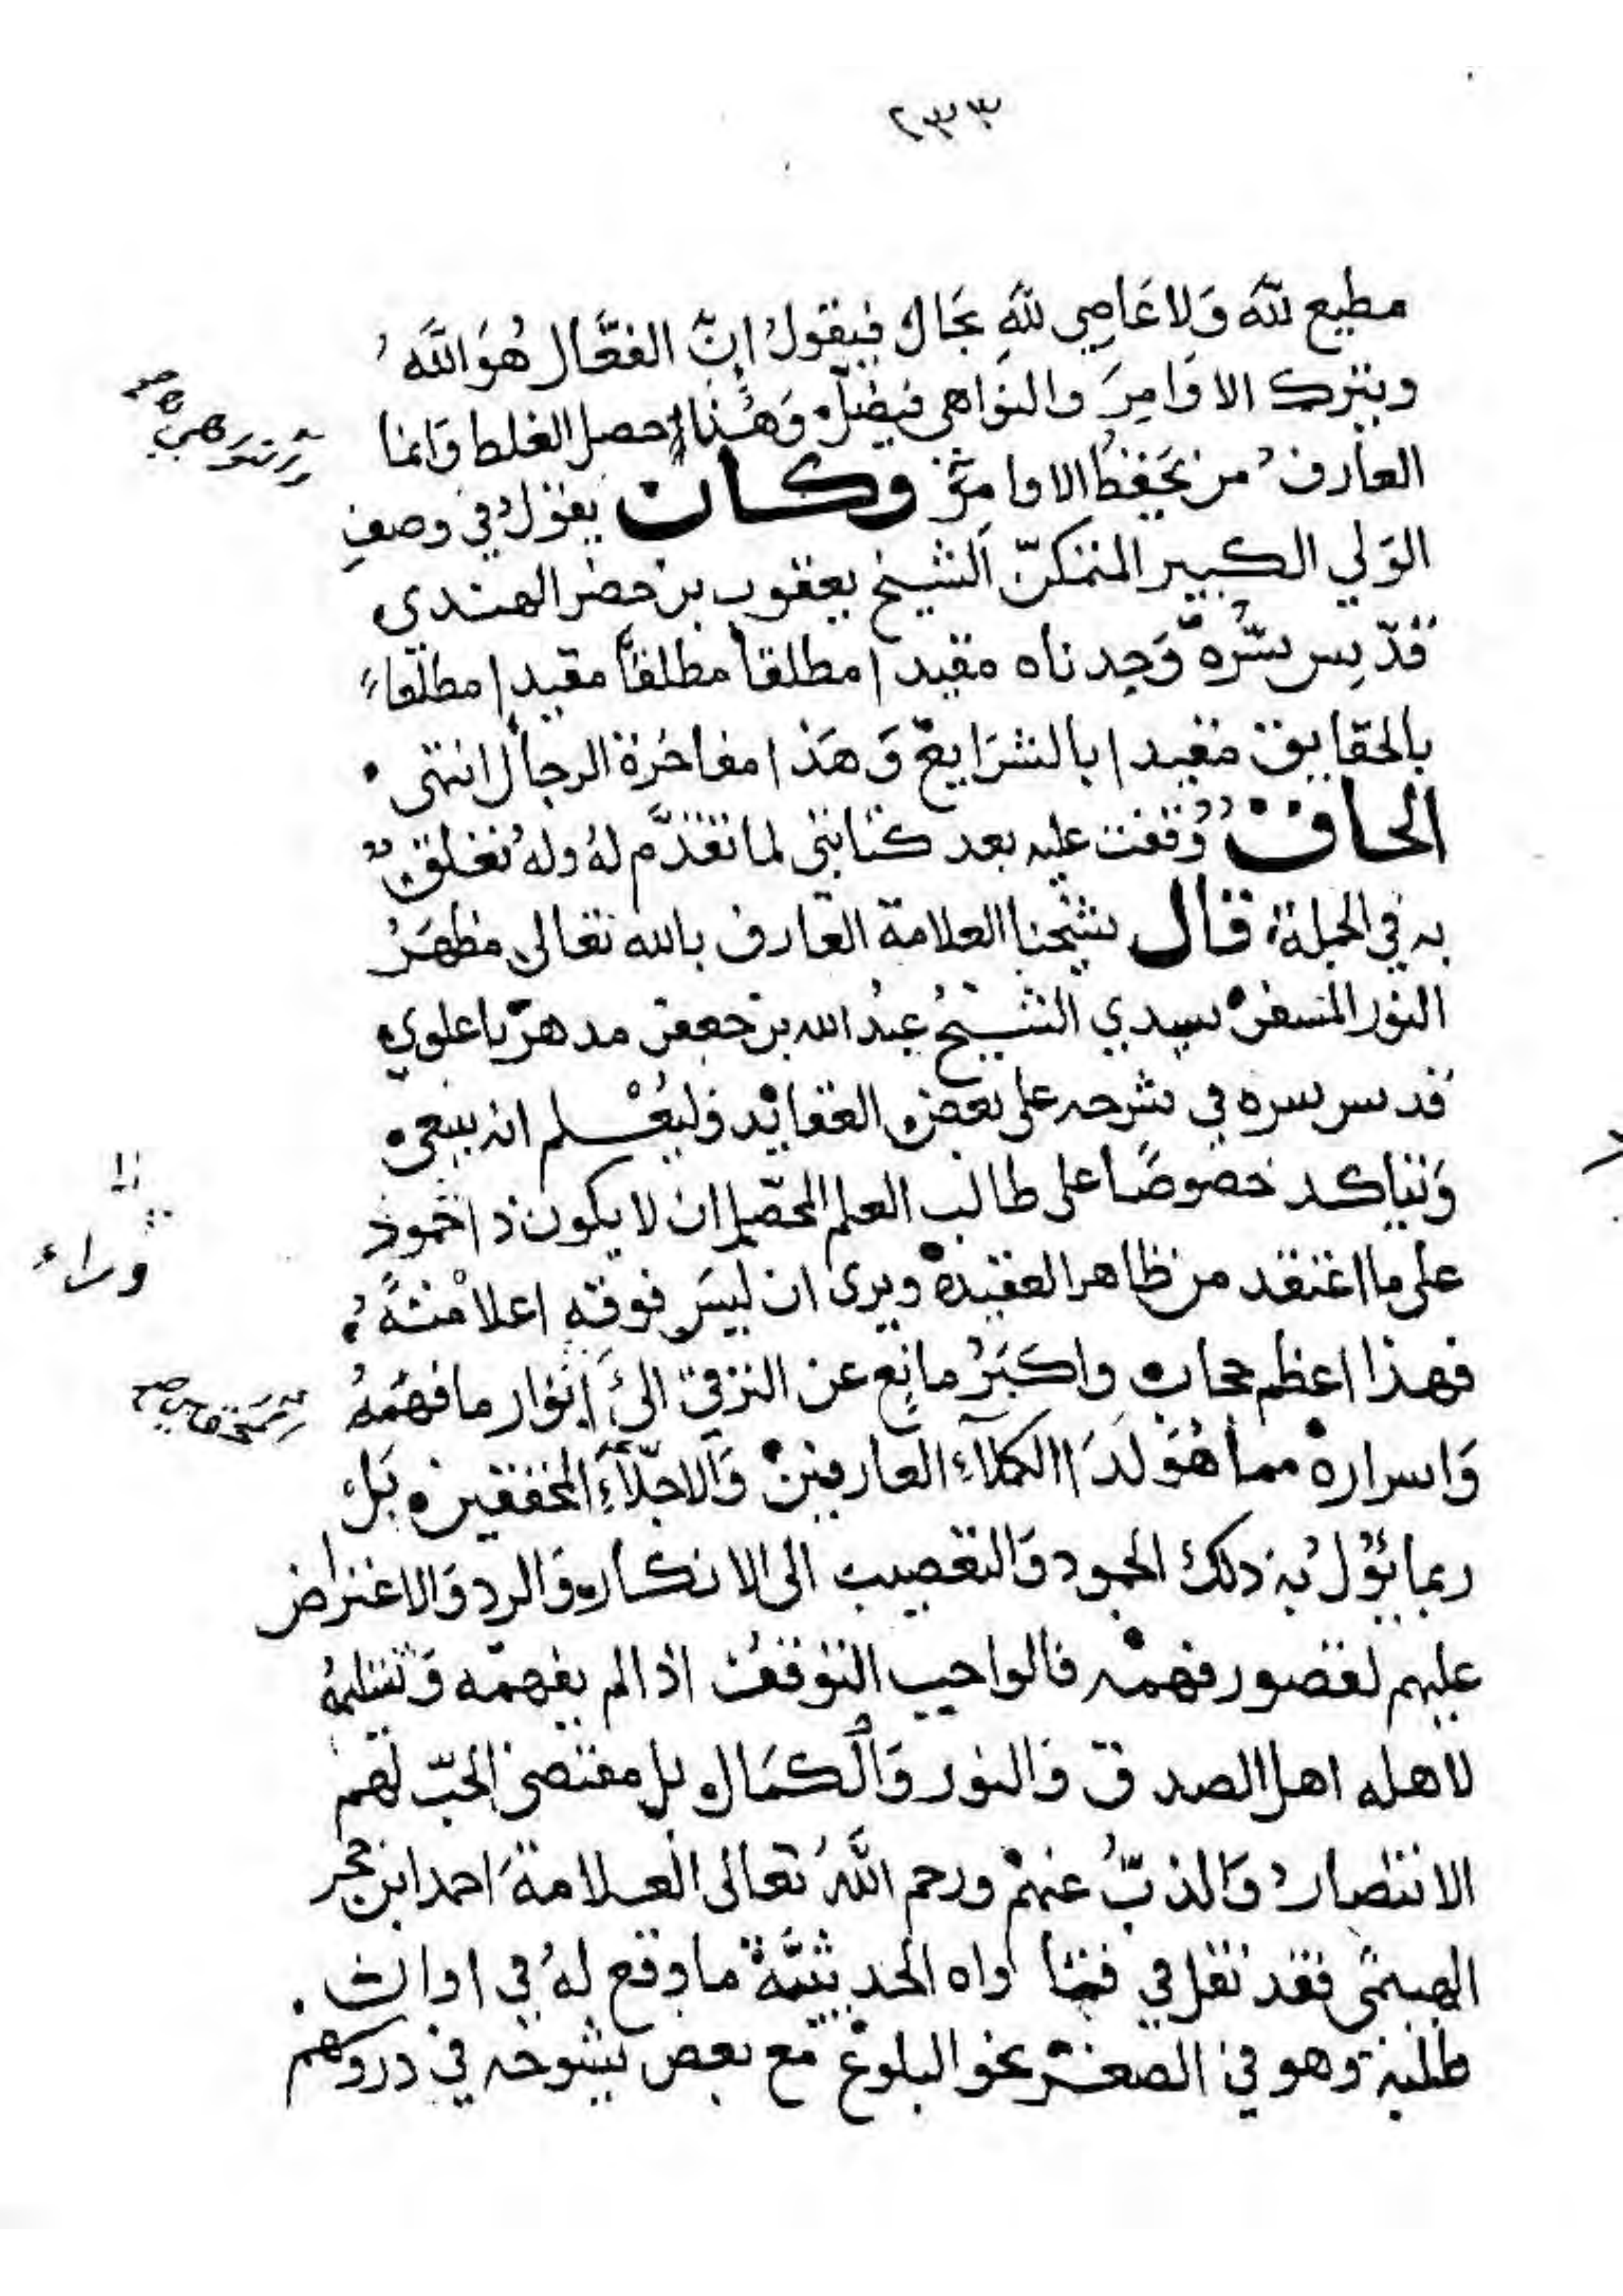 ٢٣٣
مطيع لله وَلا عَاصِي للهِ بحَال فيقولُ إنّ الفعَّال هُوَ اللَّهُ
ويترك الاوَامِرَ والنواهي فيضلّ وَهُنا حصل الغلط وَانما
العارف من يَحفظُ الاوامرَ وكان يقول في وصفِ
الوَلي الكبير المتمكنّ الشيخ يعقوب بن خضر الهندي
قدّس سّره وَجدناه مقيدا مطلقاً مطلقاً مقيدا مطلقاء
بالحقايق مقيدا بالشرَايع وَهَذا مفاخرة الرجال انتهى
الحاق وقفت عليه بعد كتابتي لما تقدّم لهُ ولهُ تعلق
به في الجملة قال شيخنا العلامة العَارف بالله تعالى مظهَرُ
النور المسفر سيدي الشيخُ عبدُ الله بن جعفر مدهر باعلوي
قدس سره في شرحه على بعض العقايد فليُعْلم انه ينبغي
وَيتاكد خصوصًا على طالب العلم المحصّل ان لا يكون ذا جمود
على ما اعتقد من ظاهر العقيدة ويرى ان ليسَ فوقه اعلا منهُ
فهذا اعظم حجاب واكبَرُ مانع عن الترقي الىَ انوار ما فهمَهُ
وَاسراره مما هُوَ لدَا الكملآء العارفين وَالاجلّآءِ المحققين بَل
ربما يؤل به ذلك الجمود وَالتعصيب الى الانكار وَالرد وَالاعتراض
عليهم لقصور فهمه فالواجب التوقفُ اذا لم يفهمه وَتسليمهُ
لاهله اهل الصدق وَالنور وَالكمَال بل مقتضى الحبّ لهم
الانتصار وَالذبّ عنهم ورحم اللهُ تعالى العلامةَ احمد ابن حجر
الهيتمى فقد نقل في فتاواه الحديثيَّة ما وقع لهُ في اوان
طلبه وهو في الصغر نحو البلوغ مع بعض شيوخه في دروكهم
وراء